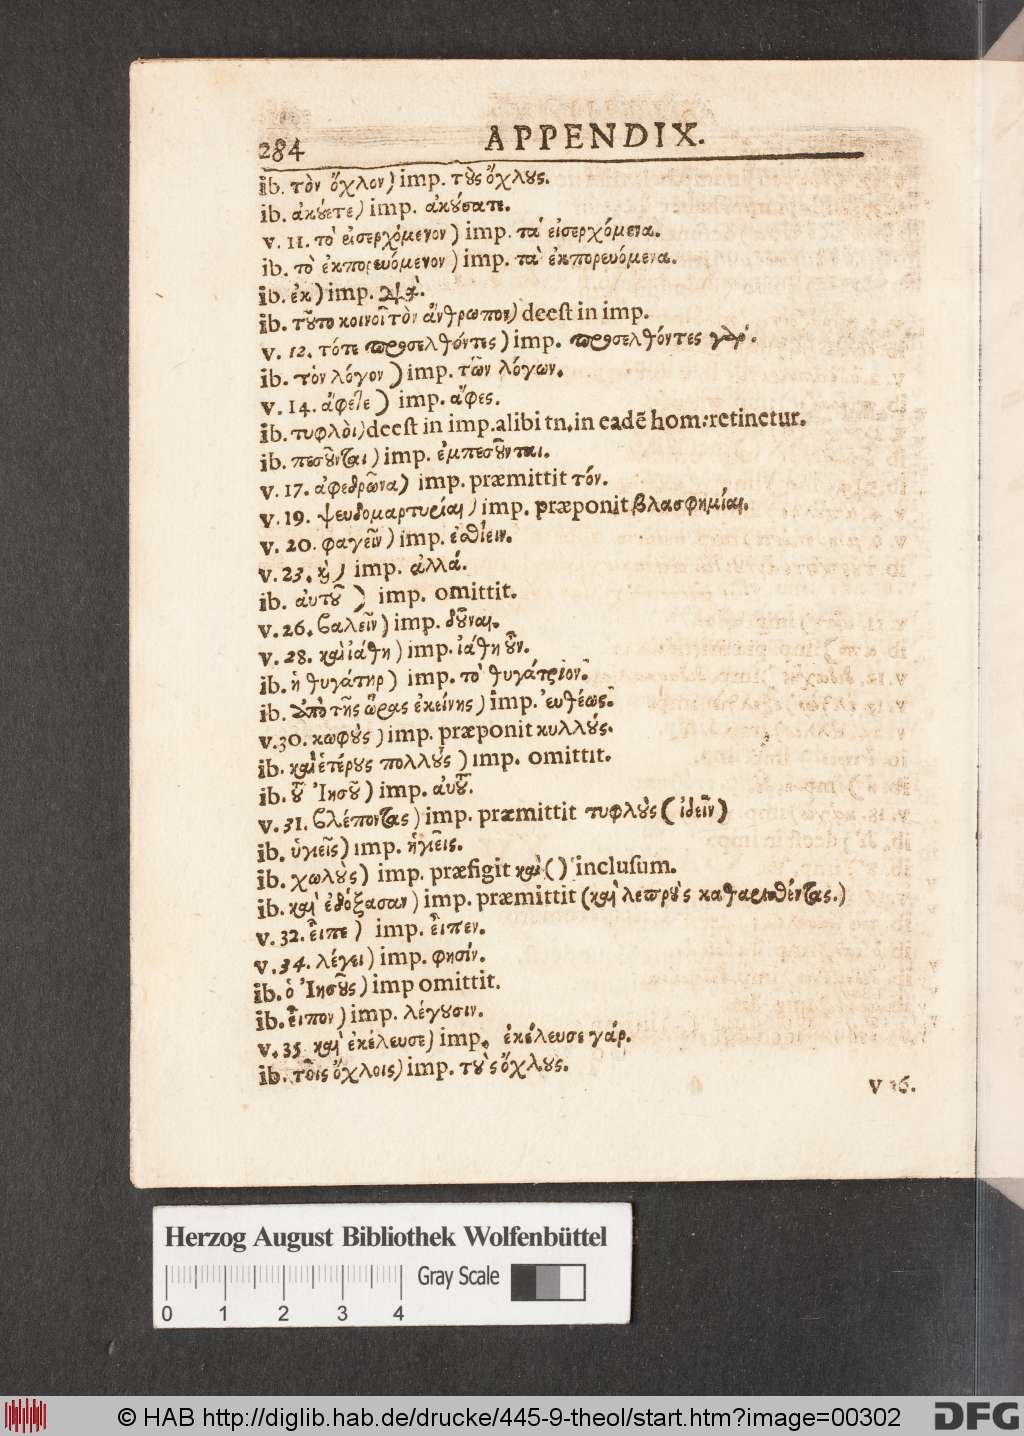 284 APPENDIX.
ib. τὸν ὄχλον) imp. τοὺς ὄχλους.
ib. ἀκούετε) imp. ἀκούσατε.
v. 11. τὸ εἰσερχόμενον) imp. τὰ εἰσερχόμενα.
ib. τὸ ἐκπορευόμενον) imp. τὰ ἐκπορευόμενα.
ib. ἐκ) imp. διὰ.
ib. τοῦτο κοινοῖ τὸν ἄνθρωπον) deest in imp.
v. 12. τότε προσελθόντες) imp. προσελθόντες γάρ.
ib. τὸν λόγον) imp. τῶν λόγων.
v. 14. ἄφετε) imp. ἄφες.
ib. τυφλὸι) deest in imp. alibi tn. in eadẽ hom: retinetur.
ib. πεσοῦνται) imp. ἐμπεσοῦνται.
v. 17. ἀφεδρῶνα) imp. præmittit τόν.
v. 19. ψευδομαρτυρίαι) imp. præponit βλασφημίαι.
v. 20. φαγεῖν) imp. ἐσθίειν.
v. 23. καὶ) imp. ἀλλά.
ib. αὐτοῦ) imp. omittit.
v. 26. βαλεῖν) imp. δοῦναι.
v. 28. καὶ ἰάθη) imp. ἰάθη οὖν.
ib. ἡ θυγάτηρ) imp. τὸ θυγάτριον.
ib. ἀπὸ τῆς ὥρας ἐκείνης) imp. εὐθέως.
v. 30. κωφοὺς) imp. præponit κυλλούς.
ib. καὶ ἑτέρους πολλοὺς) imp. omittit.
ib. τοῦ Ἰησοῦ) imp. ἀυτοῦ.
v. 31. βλέποντας) imp. præmittit τυφλοὺς (ἰδεῖν)
ib. ὑγιεῖς) imp. ἡγιεῖς.
ib. χωλοὺς) imp. præfigit καὶ () inclusum.
ib. καὶ ἐδόξασαν) imp. præmittit (καὶ λεπροὺς καθαρισθέντας.)
v. 32. εἶπε) imp. εἶπεν.
v. 34. λέγει) imp. φησίν.
ib. ὁ Ἰησοῦς) imp omittit.
ib. εἶπον) imp. λέγουσιν.
v. 35 καὶ ἐκέλευσε) imp. ἐκέλευσε γάρ.
ib. τοῖς ὄχλοις) imp. τοὺς ὄχλους.
v 36.
Herzog August Bibliothek Wolfenbüttel
Gray Scale
0 1 2 3 4
© HAB http://diglib.hab.de/drucke/445-9-theol/start.htm?image=00302
DFG